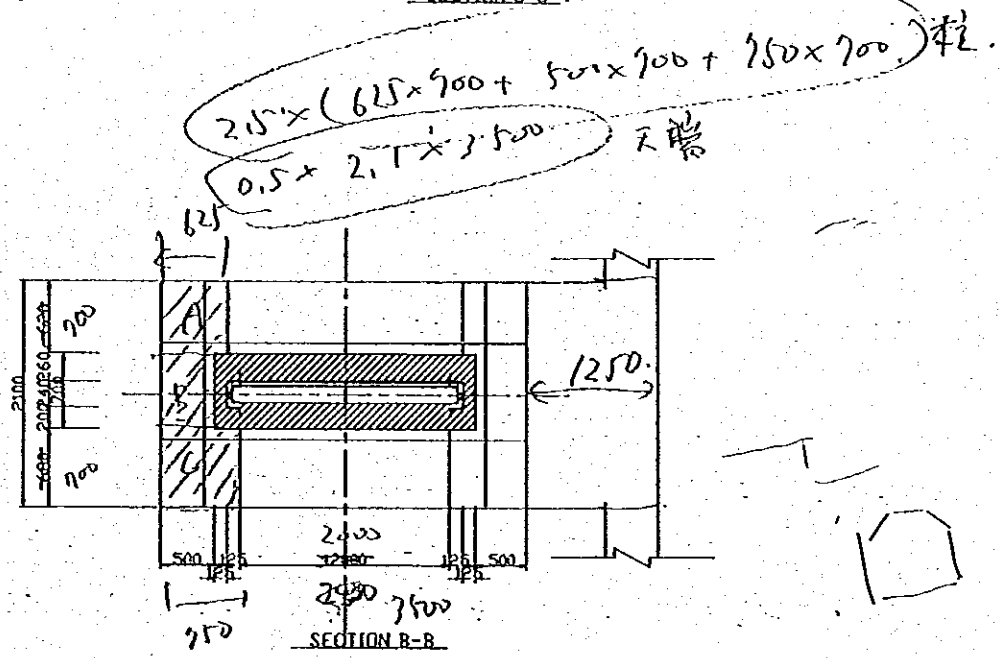 2.5 × ( 625×700 + 500×700 + 750×700 ) 柱.
0.5 × 2.1 × 3.500 天牆
625
700
2100
700
700
A
B
C
1250.
2000
500 125
125 500
125
125
3500
750
SECTION B-B